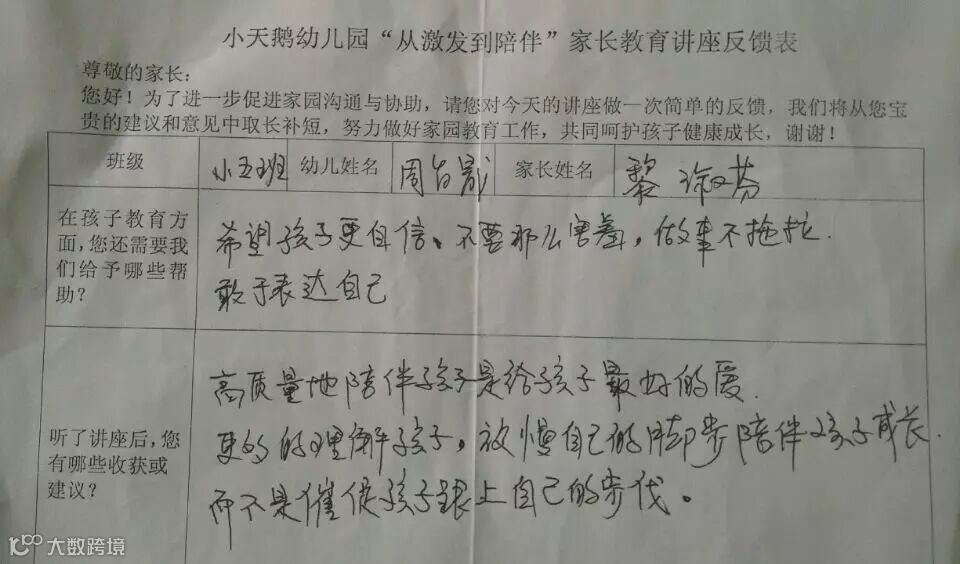 小天鹅幼儿园“从激发到陪伴”家长教育讲座反馈表
尊敬的家长：
您好！为了进一步促进家园沟通与协助，请您对今天的讲座做一次简单的反馈，我们将从您宝
贵的建议和意见中取长补短，努力做好家园教育工作，共同呵护孩子健康成长，谢谢！
班级 小五班 幼儿姓名 周 家长姓名 黎淑芬
在孩子教育方
面，您还需要我
们给予哪些帮
助？
希望孩子更自信、不要那么害羞，做事不拖拉.
敢于表达自己
听了讲座后，您
有哪些收获或
建议？
高质量地陪伴孩子是给孩子最好的爱.
更好的理解孩子，放慢自己的脚步陪伴孩子成长.
而不是催促孩子跟上自己的步伐。
大数跨境